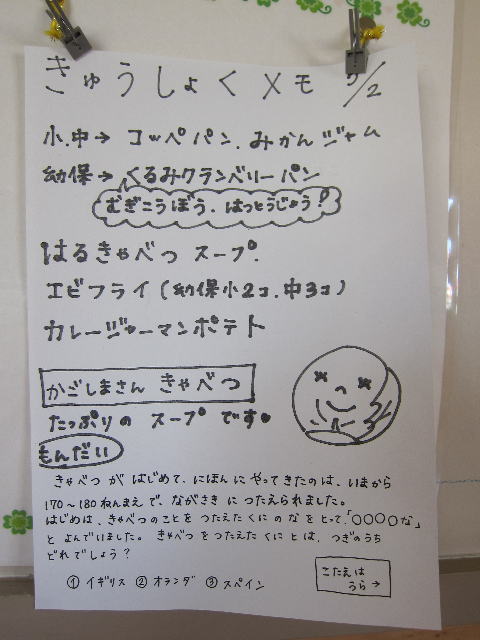 きゅうしょくメモ 5/2
小.中→ コッペパン.みかんジャム
幼保→ くるみクランベリーパン
むぎこうぼう.はっとうじょう!
はるきゃべつ スープ.
エビフライ(幼保小2コ.中3コ)
カレージャーマンポテト
かごしまさん きゃべつ
たっぷりの スープ です。
もんだい
きゃべつ が はじめて、にほんに やってきたのは、いまから
170〜180ねんまえ で、ながさき に つたえられました。
はじめは、きゃべつのことを つたえたくにの な をとって、「○○○○な」
と よんでいました。 きゃべつ をつたえた くに とは、つぎのうち
どれでしょう?
① イギリス ② オランダ ③ スペイン
こたえは
うら→